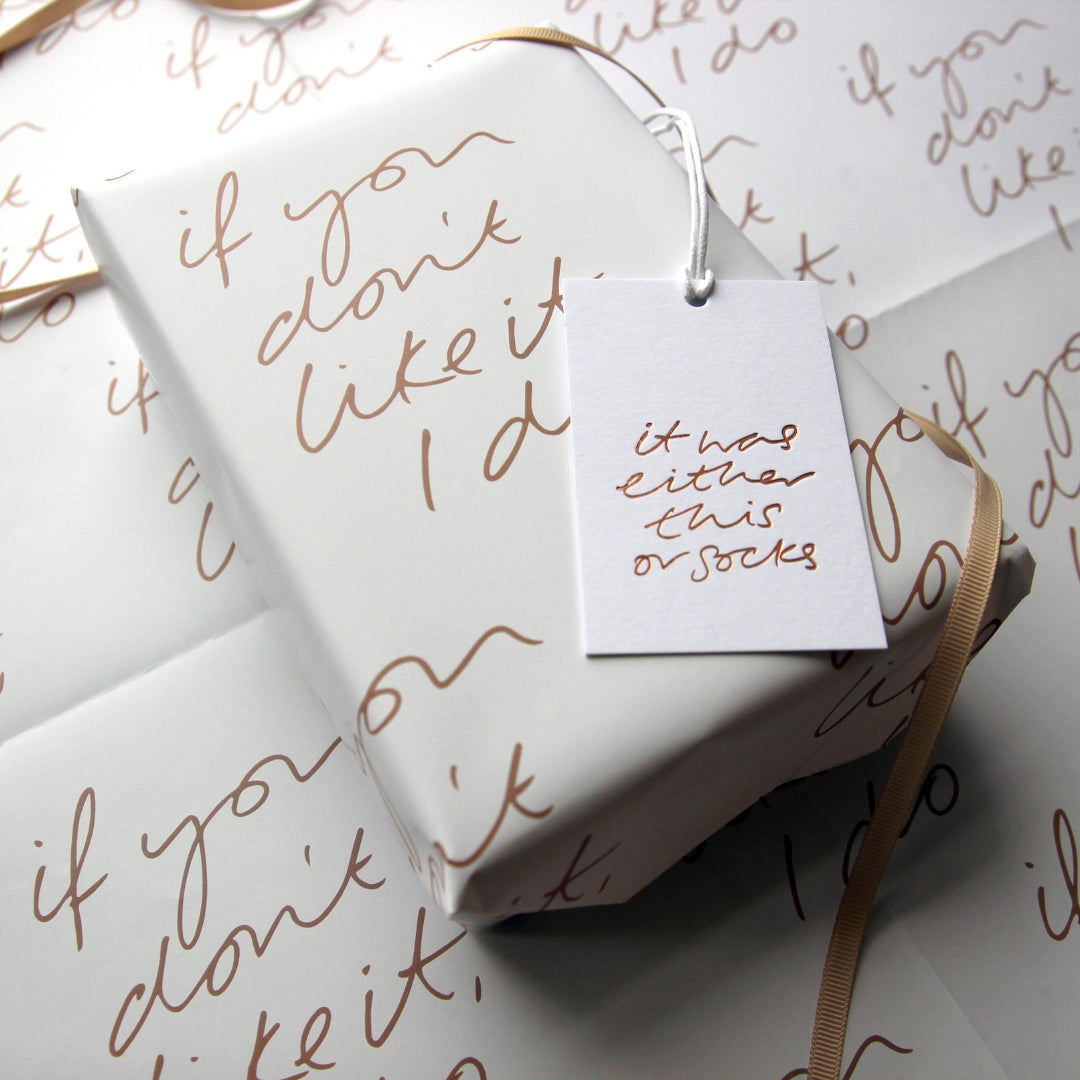 if you
don't
like it,
I do
if you
don't
like it
I do
if you
don't
like it
I d
it was
either
this
or socks
if you
don't
like it,
I do
you
n't
it,
if you
don't
like it,